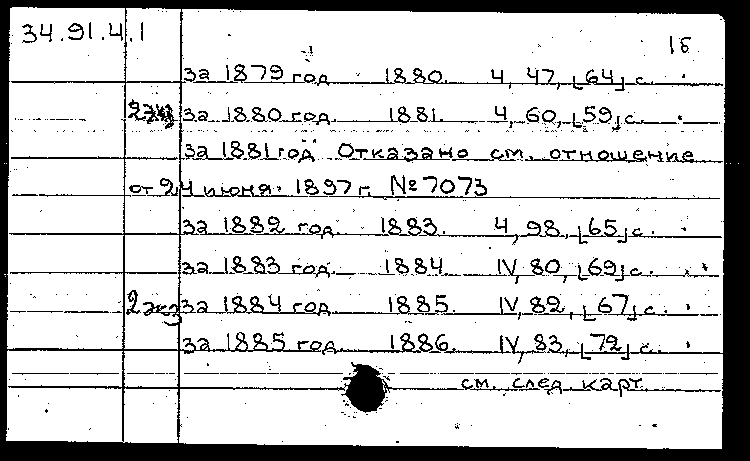 34.91.4.1
1б
за 1879 год 1880. 4, 47, [64] с.
2 экз за 1880 год. 1881. 4, 60, [59] с.
за 1881 год Отказано см. отношение
от 24 июня 1897 г. № 7073
за 1882 год. 1883. 4, 98, [65] с.
за 1883 год. 1884. IV, 80, [69] с.
2 экз за 1884 год 1885. IV, 82, [67] с.
за 1885 год. 1886. IV, 83, [72] с.
см. след. карт.